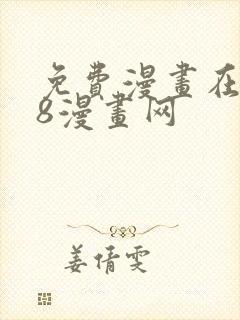 免費漫畫在
8漫畫网
姜倩雯